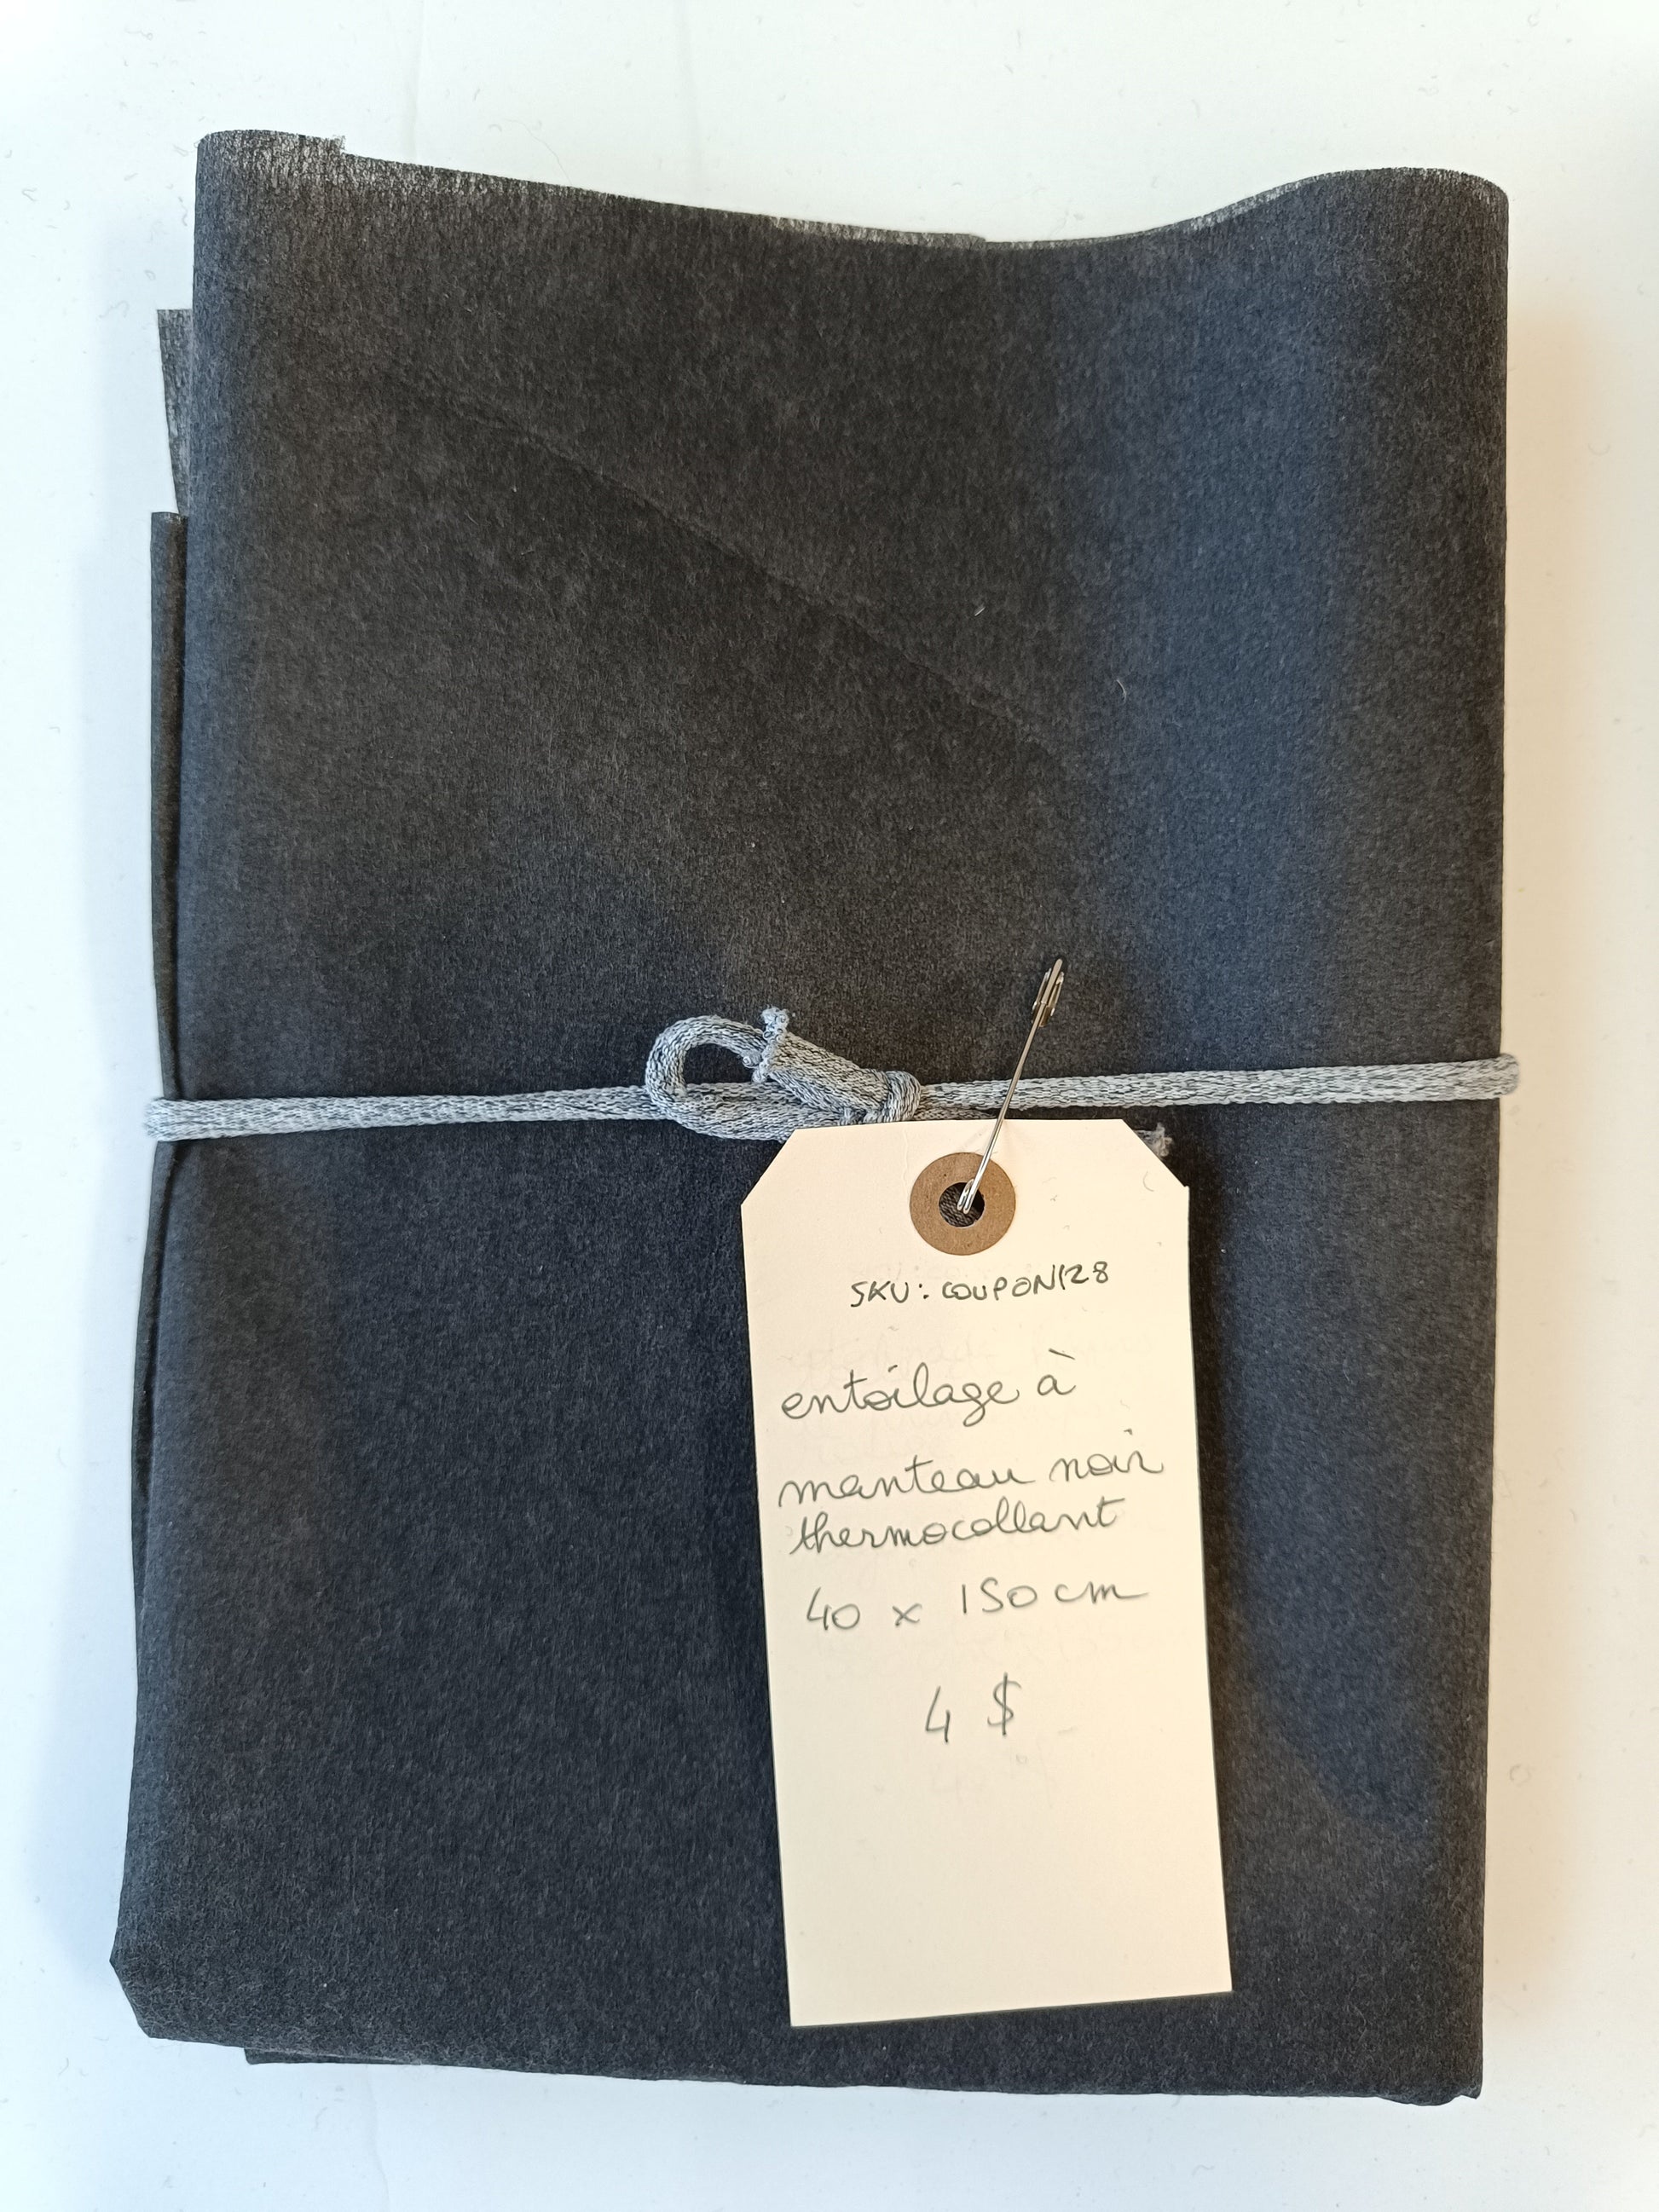 SKU: COUPON128
entoilage à
manteau noir
thermocollant
40 x 150 cm
4 $